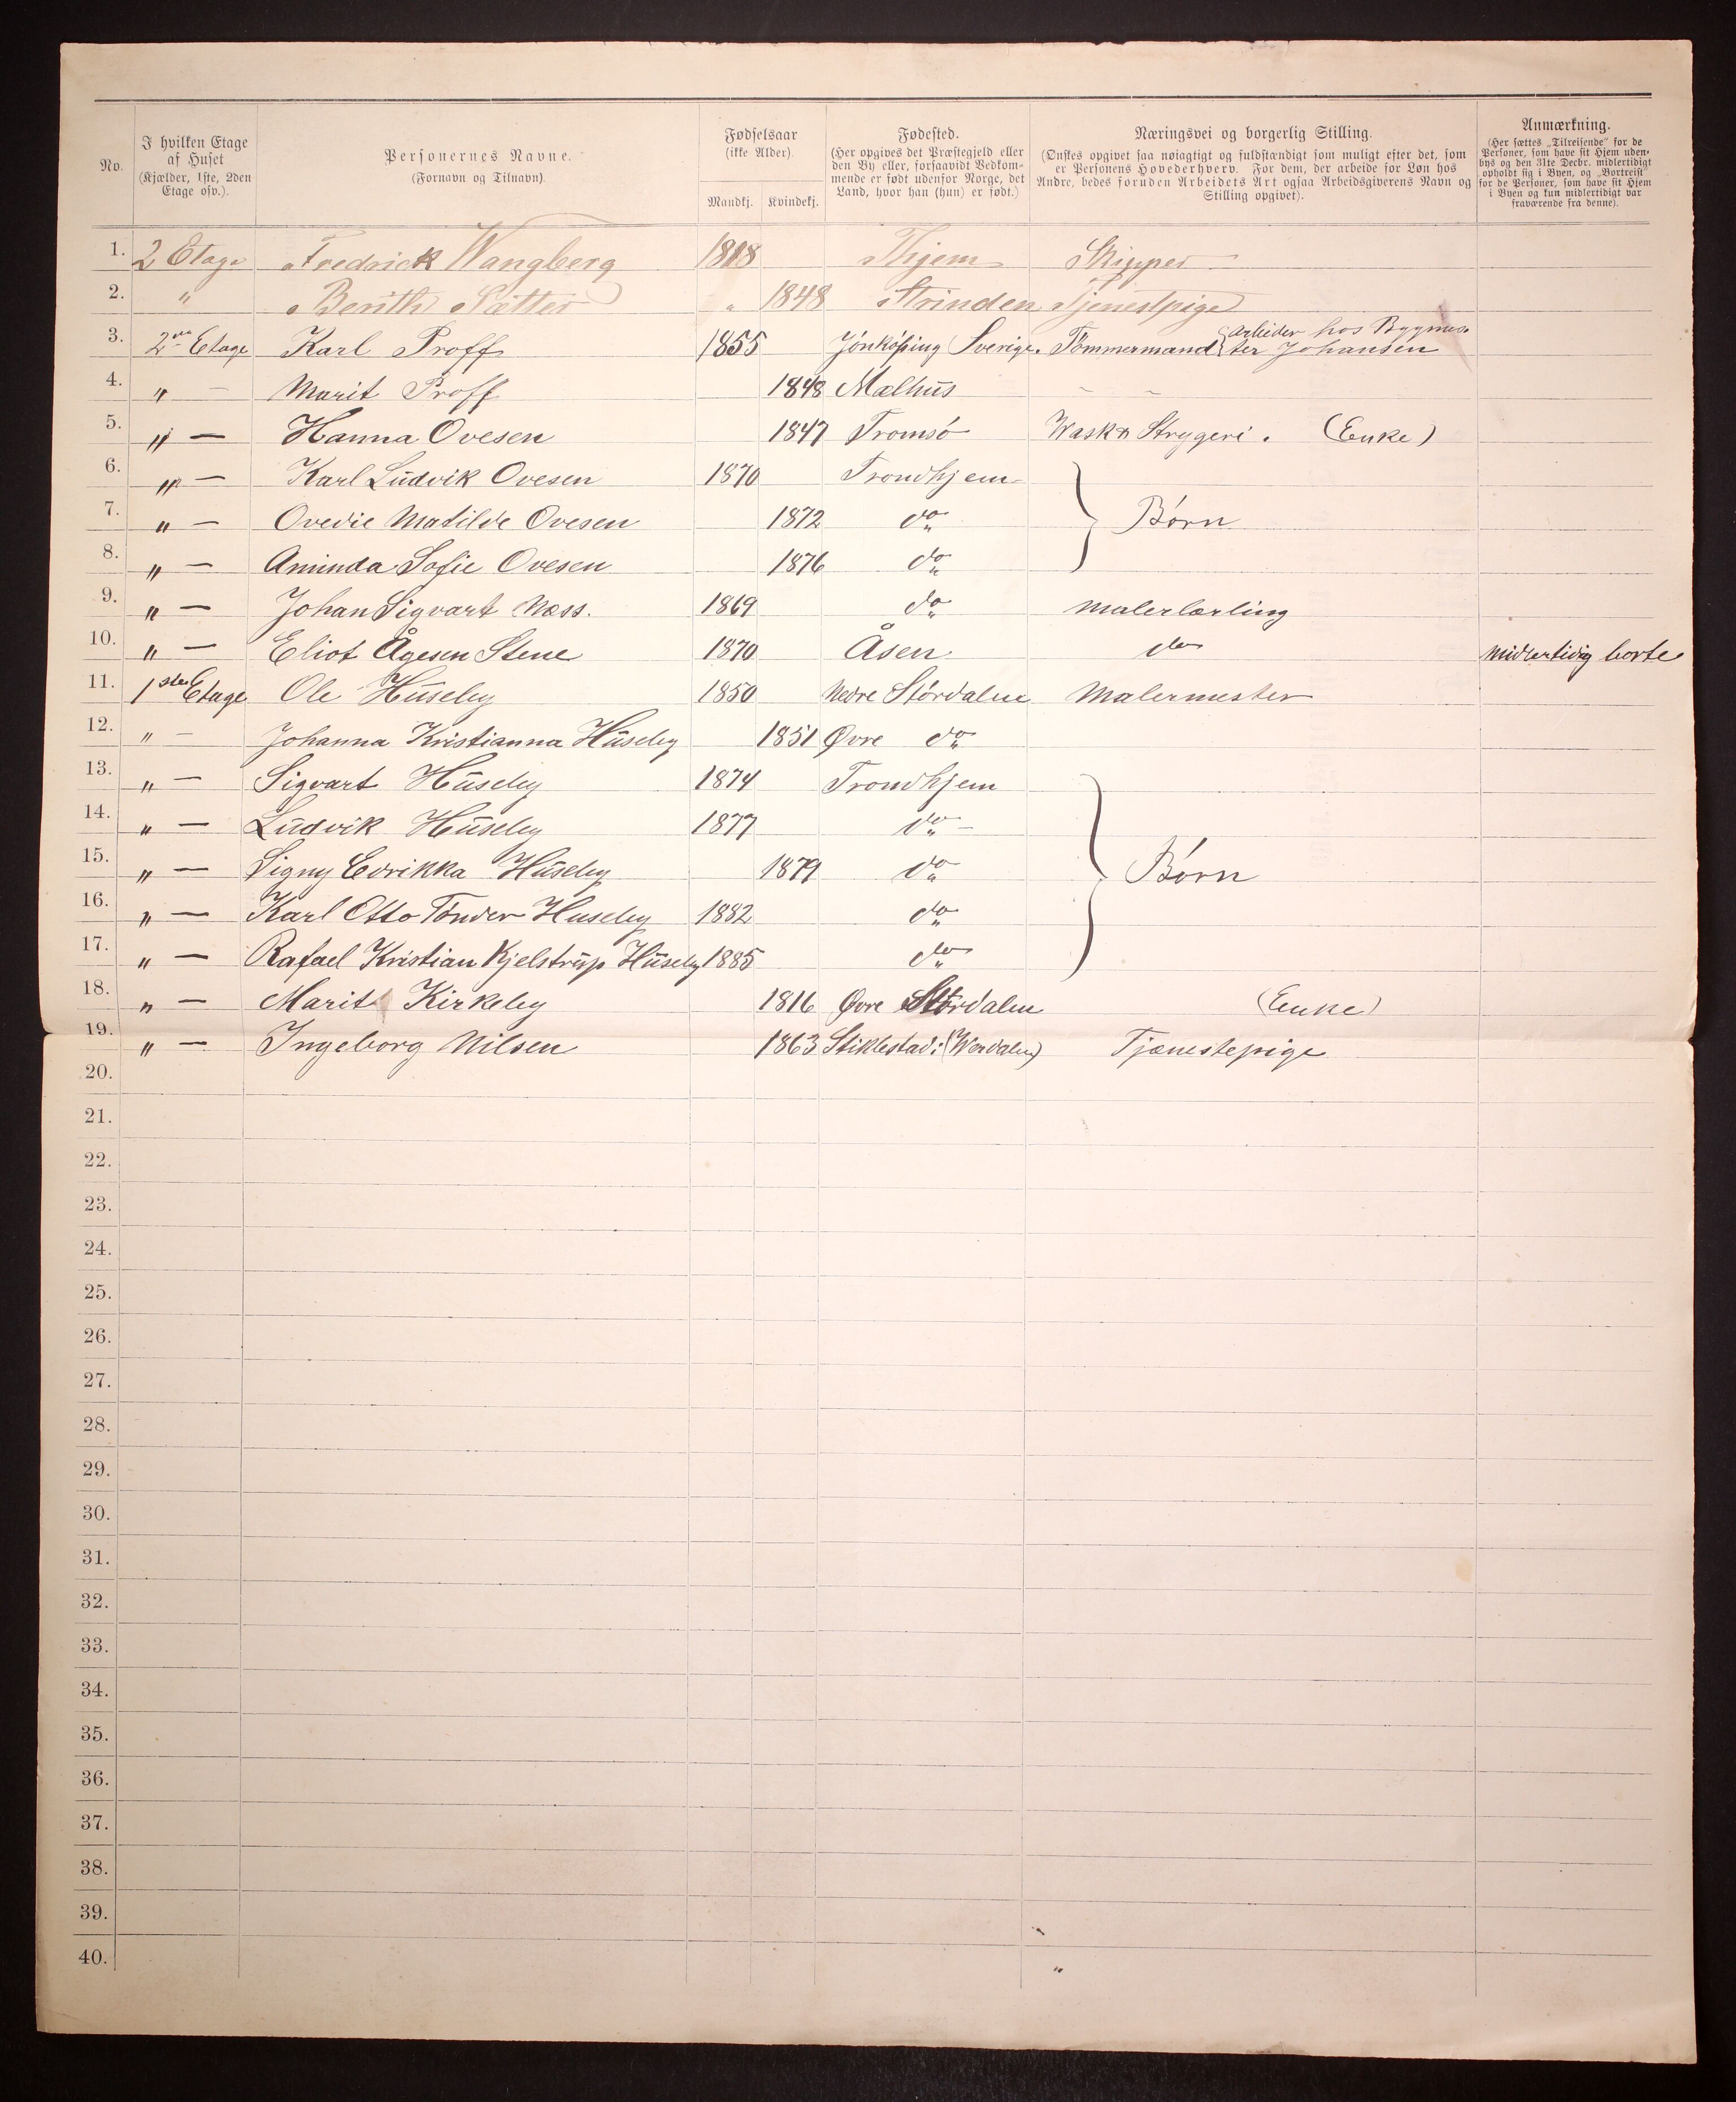 No.
I hvilken Etage af Huset (Kjælder, 1ste, 2den Etage osv.).
Personernes Navne. (Fornavn og Tilnavn).
Fødselsaar (ikke Alder).
Mandkj. Kvindekj.
Fødested. (Her opgives det Præstegjeld eller den By eller, forsaavidt Vedkommende er født udenfor Norge, det Land, hvor han (hun) er født.)
Næringsvei og borgerlig Stilling. (Ønskes opgivet saa nøiagtigt og fuldstændigt som muligt efter det, som er Personens Hovederhverv. For dem, der arbeide for Løn hos Andre, bedes foruden Arbeidets Art ogsaa Arbeidsgiverens Navn og Stilling opgivet).
Anmærkning. (Her sættes „Tilreisende" for de Personer, som have sit Hjem udenbys og den 31te Decbr. midlertidigt opholdt sig i Byen, og „Bortreist" for de Personer, som have sit Hjem i Byen og kun midlertidigt var fraværende fra denne).
1. 2 Etage Fredrick Wangberg 1818 Thjem Skipper
2. " Berith Sætter " 1848 Strinden Tjenestpige
3. 2den Etage Karl Proff 1855 Jönköping Sverige. Tömmermand arbeider hos Bygmester Johansen
4. " — Marit Proff 1848 Mælhus
5. " — Hanna Ovesen 1847 Tromsö Wask & Strygeri. (Enke)
6. " — Karl Ludvik Ovesen 1870 Trondhjem
7. " — Ovedie Matilde Ovesen 1872 do Börn
8. " — Aminda Sofie Ovesen 1876 do
9. " — Johan Sigvart Næss. 1869 do Malerlærling
10. " — Eliot Ågesen Stene 1870 Åsen do Midlertidig borte
11. 1ste Etage Ole Huseby 1850 Nedre Stördalen Malermester
12. " — Johanna Kristianna Huseby 1851 Øvre do
13. " — Sigvart Huseby 1874 Trondhjem
14. " — Ludvik Huseby 1877 do —
15. " — Signy Edrikka Huseby 1879 do Börn
16. " — Karl Otto Tönder Huseby 1882 do
17. " — Rafael Kristian Kjelstrup Huseby 1885 do
18. " — Marit Kirkeby 1816 Øvre Stördalen (Enke)
19. " — Ingeborg Nilsen 1863 Stiklestad: (Werdalen) Tjænestepige
20.
21.
22.
23.
24.
25.
26.
27.
28.
29.
30.
31.
32.
33.
34.
35.
36.
37.
38.
39.
40.